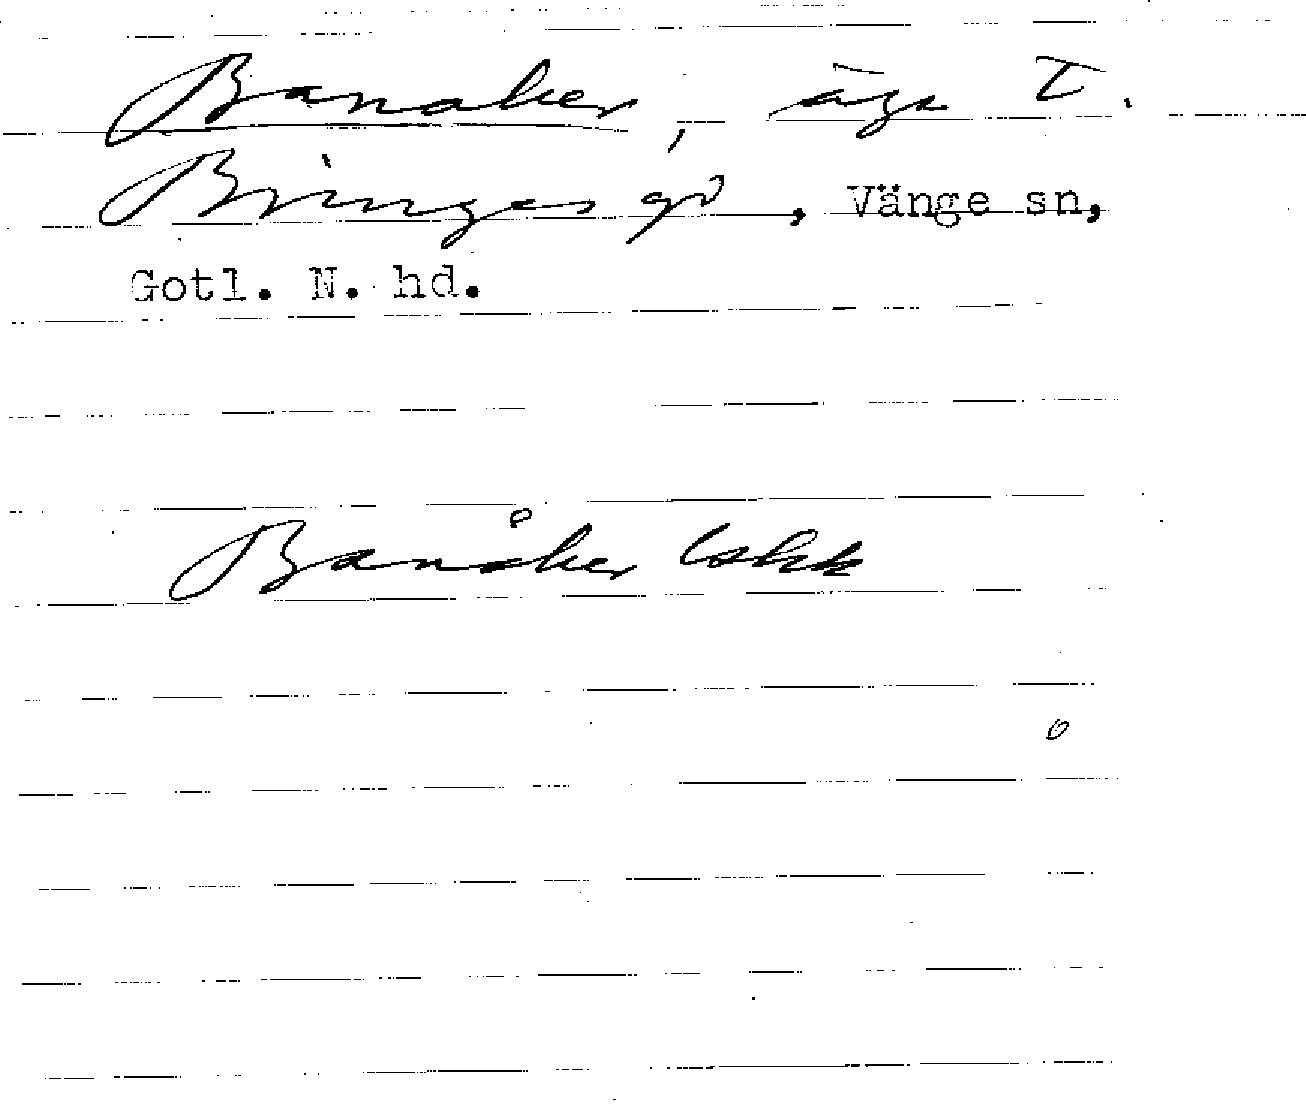 Banaker, äga t.
Bringes gd, Vänge sn,
Gotl. N. hd.
Banåker lskk